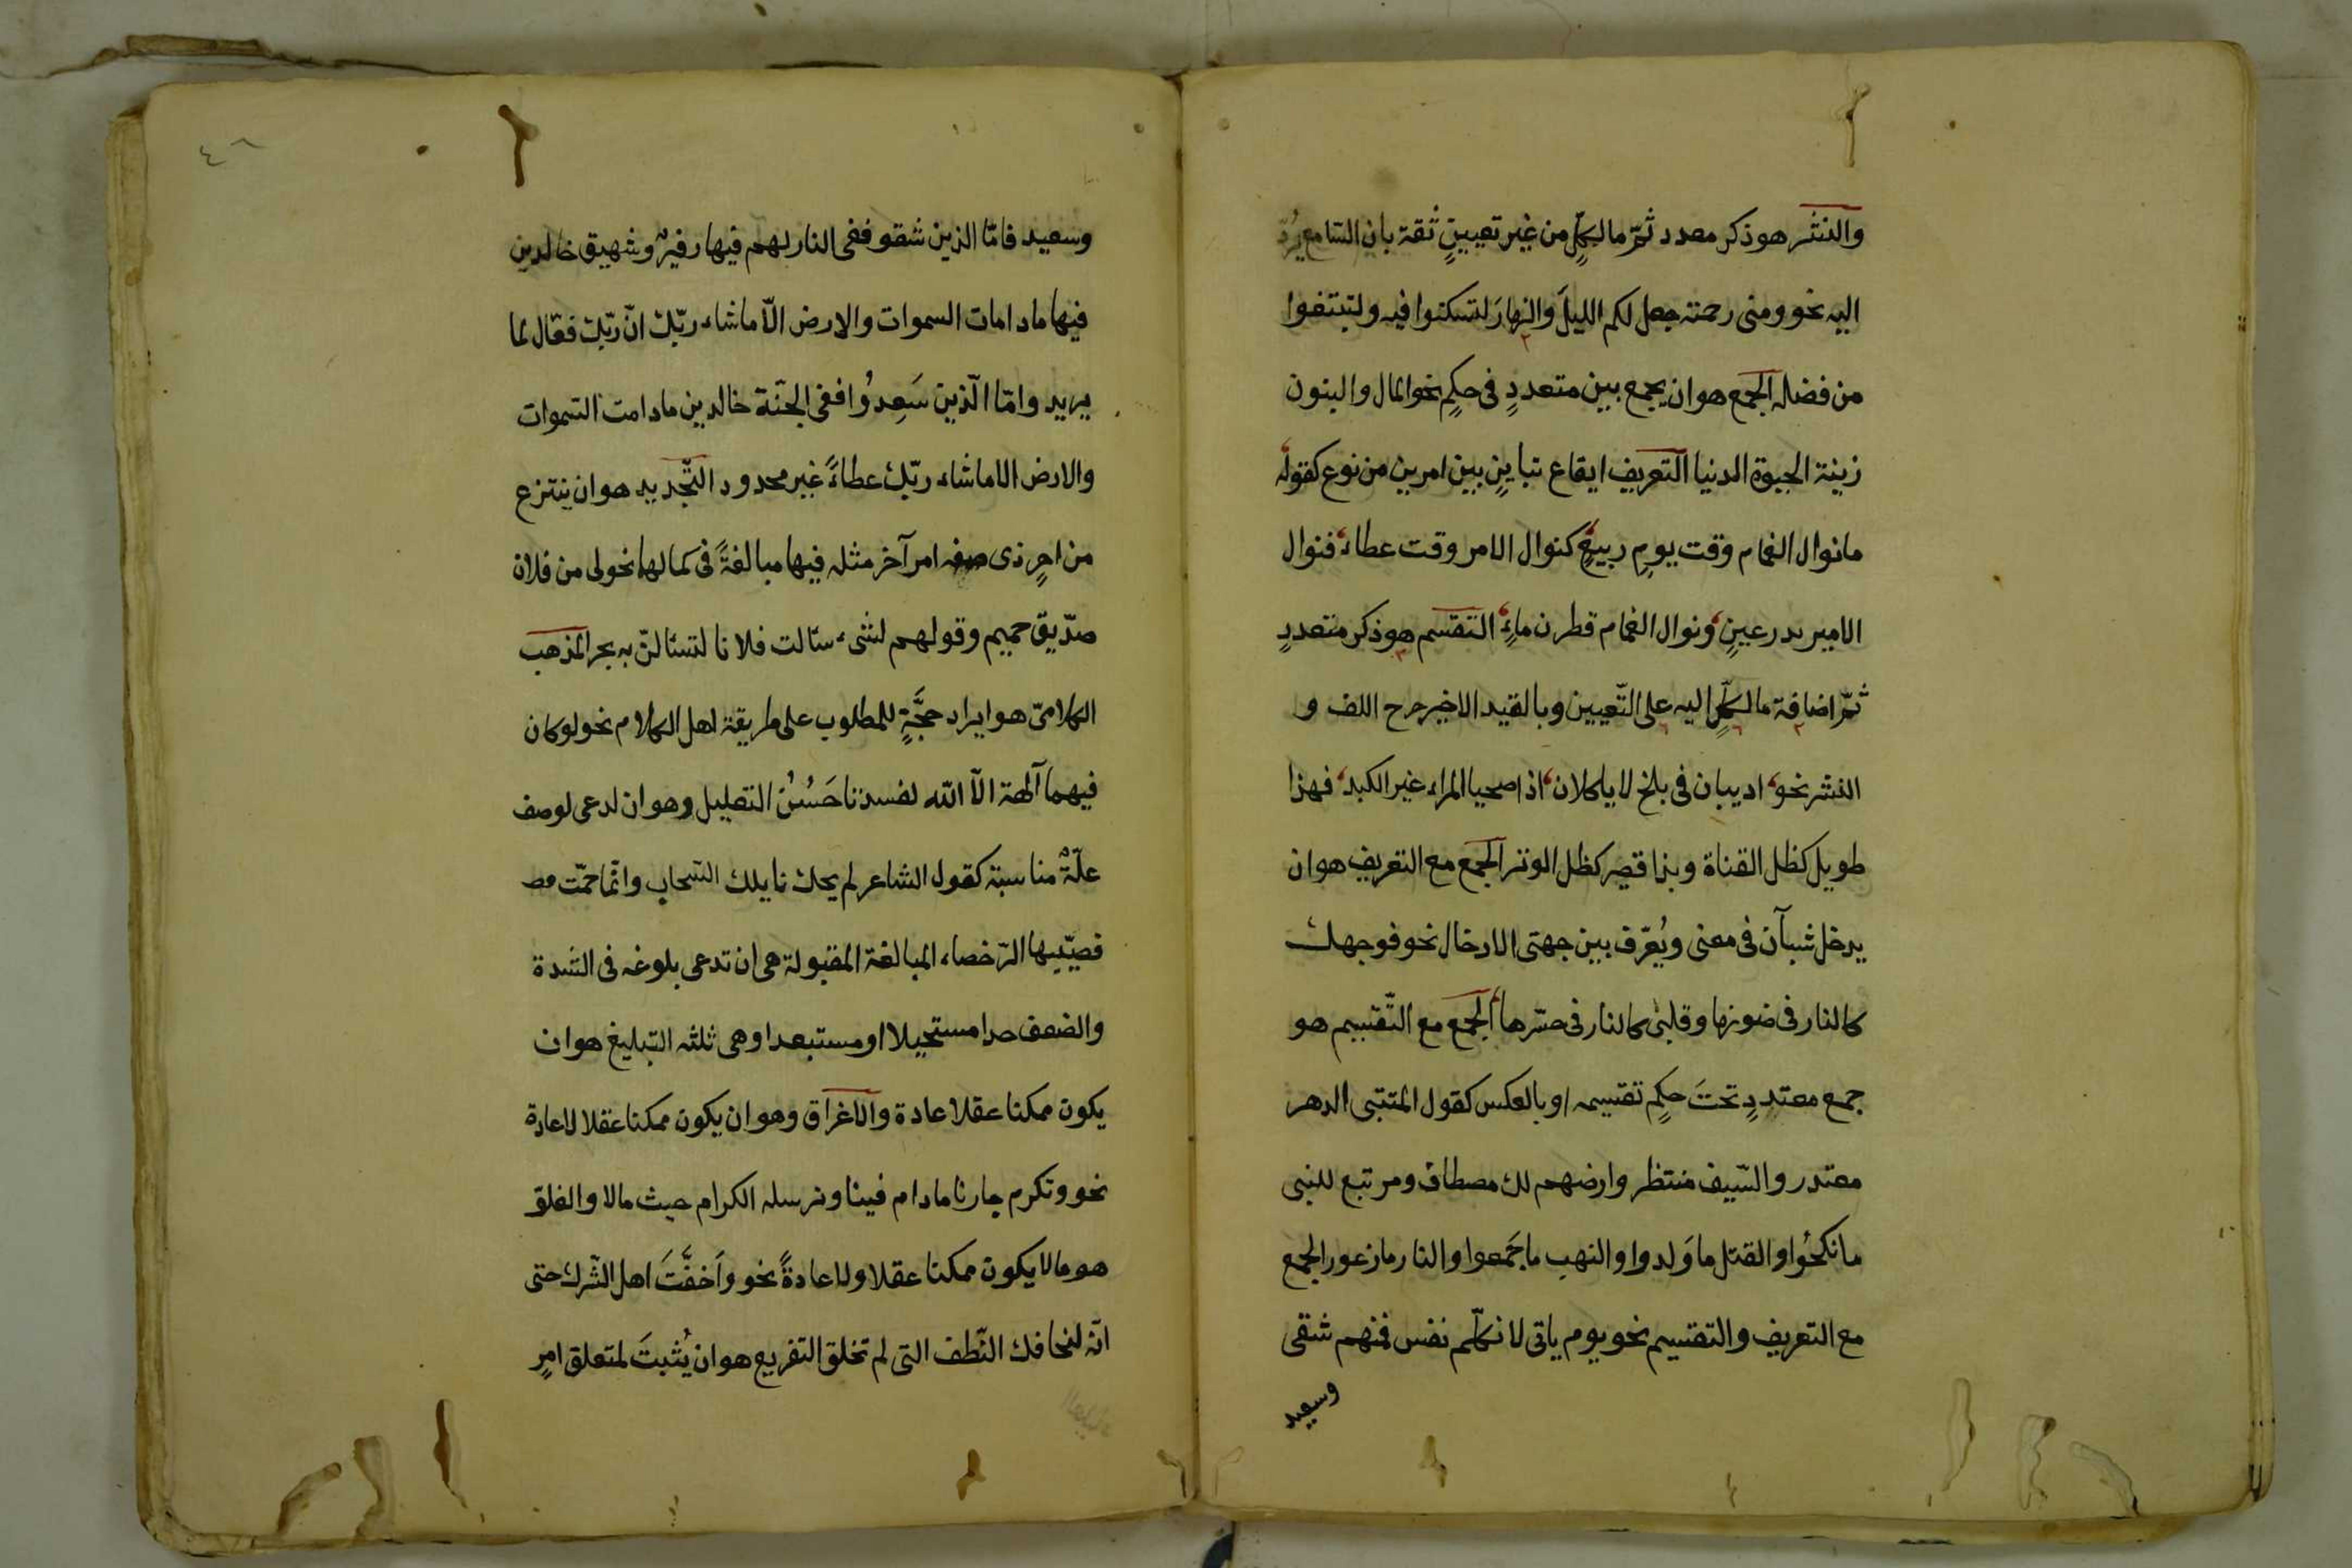 والنشر هو ذكر معدد ثمّ ما لكلٍّ من غير تعيينٍ ثقة بان السّامع يُردّ
اليه نحو ومنى رحمته جعل لكم الليلَ والنهارَ لتسكنوا فيه ولتبتغوا
من فضله الجمع هو ان يجمع بين متعددٍ فى حكمٍ نحو المال والبنون
زينة الحيوة الدنيا التعريف ايقاع تباينٍ بين امرين من نوع كقوله
ما نوال الغمام وقت يومٍ ربيعٍ كنوال الامر وقت عطاء فنوال
الامير بدر عينٍ ونوال الغمام قطرن ماءٍ التقسم هو ذكر متعددٍ
ثمّ اضافة ما لكلٍّ اليه على التّعيين وبالقيد الاخير خرج اللف و
النشر نحو اديبان فى بلخ لا ياكلان اذا صحبا المراء غير الكبد فهذا
طويل كظل القناة وبذا قصير كظل الوتر الجمع مع التعريف هو ان
يدخل شيآن فى معنى ويُعرّف بين جهتى الادخال نحو فوجهك
كالنار فى ضوئها وقلبى كالنار فى حرّها الجمع مع التّقسيم هو
جمع معتددٍ تحتَ حكمٍ تقسيمه او بالعكس كقول المتنبى الدهر
معتدر والسّيف منتظر وارضهم لك مصطاف ومرتبع للنبى
ما نكحُوا والقتل ما وَلدوا والنهب ما جَمعوا والنار مازعور الجمع
مع التعريف والتقسيم نحو يوم ياتى لا نكلّم نفس فمنهم شقى
وسعيد
٤٦
وسعيد فامّا الذين شقو ففى النار لهم فيها رفيرٌ وشهيق خالدين
فيها ما دامات السموات والارض الّا ماشاء ربّك انّ ربّك فعّال لما
يريد وامّا الّذين سَعِدُوا ففى الجنّة خالدين مادامت السّموات
والارض الا ماشاء ربّك عطاءً غير محدود التّجديد هو ان ينتزع
من امرٍ ذى صفه امر آخر مثله فيها مبالغةً فى كمالها نحو لى من فلان
صدّيق حميم وقولهم لشىء سئالت فلانا لتسئالنّ به بحر المذهب
الكلامىّ هو ايراد حجَّةٍ للمطلوب على طريقة اهل الكلام نحو لو كان
فيهما آلهة الّا الله لفسدتا حَسُنُ التعليل وهو ان لدعى لوصف
علّةٌ مناسبة كقول الشاعر لم يحك نايلك السّحاب وانّما حمّت
فصيّبها الرّخصاء المبالغة المقبولة هى ان تدعى بلوغه فى الشدة
والضعف حدا مستحيلا او مستبعدا وهى ثلثه التبليغ هو ان
يكون ممكنا عقلا عادة والاغراق وهو ان يكون ممكنا عقلا لاعادة
نحو ونكرم جارنا مادام فينا ونرسله الكرام حيث مالا والغلوّ
هو مالا يكون ممكنا عقلا ولا عادةً نحو واَخفَّتَ اهل الشّرك حتى
انّه لتخافك النّطف التى لم تخلق التفريع هو ان يُثبتَ لمتعلق امرٍ